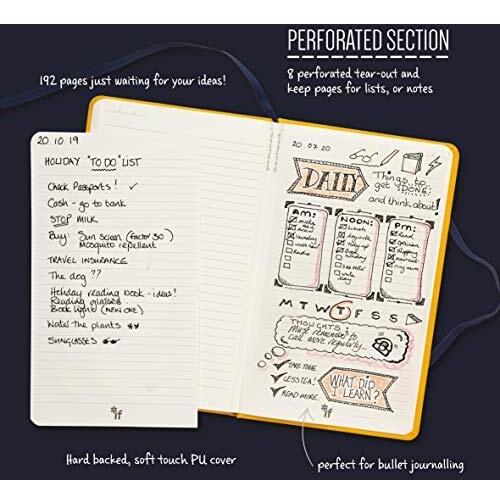 PERFORATED SECTION
192 pages just waiting for your ideas!
8 perforated tear-out and
keep pages for lists, or notes
20.10.19
HOLIDAY "TO DO" LIST
Check Passports! ✓
Cash - go to bank
STOP MILK
Buy: Sun screen (Factor 30)
Mosquito repellent
TRAVEL INSURANCE
The dog ??
Holiday reading book - ideas!
Reading glasses
Book light (NEW ONE)
Water the plants **
SUNGLASSES
if
20.07.20
DAILY
Things to
get DONE
and think about!
AM:
NOON:
PM:
lunch
M T W T F S S
THOUGHTS:
Must remember to
call mom regularly..
✓ ME TIME
✓ LESS TEA!
✓ READ MORE.
WHAT DID
I LEARN?
if
Hard backed, soft touch PU cover
perfect for bullet journalling